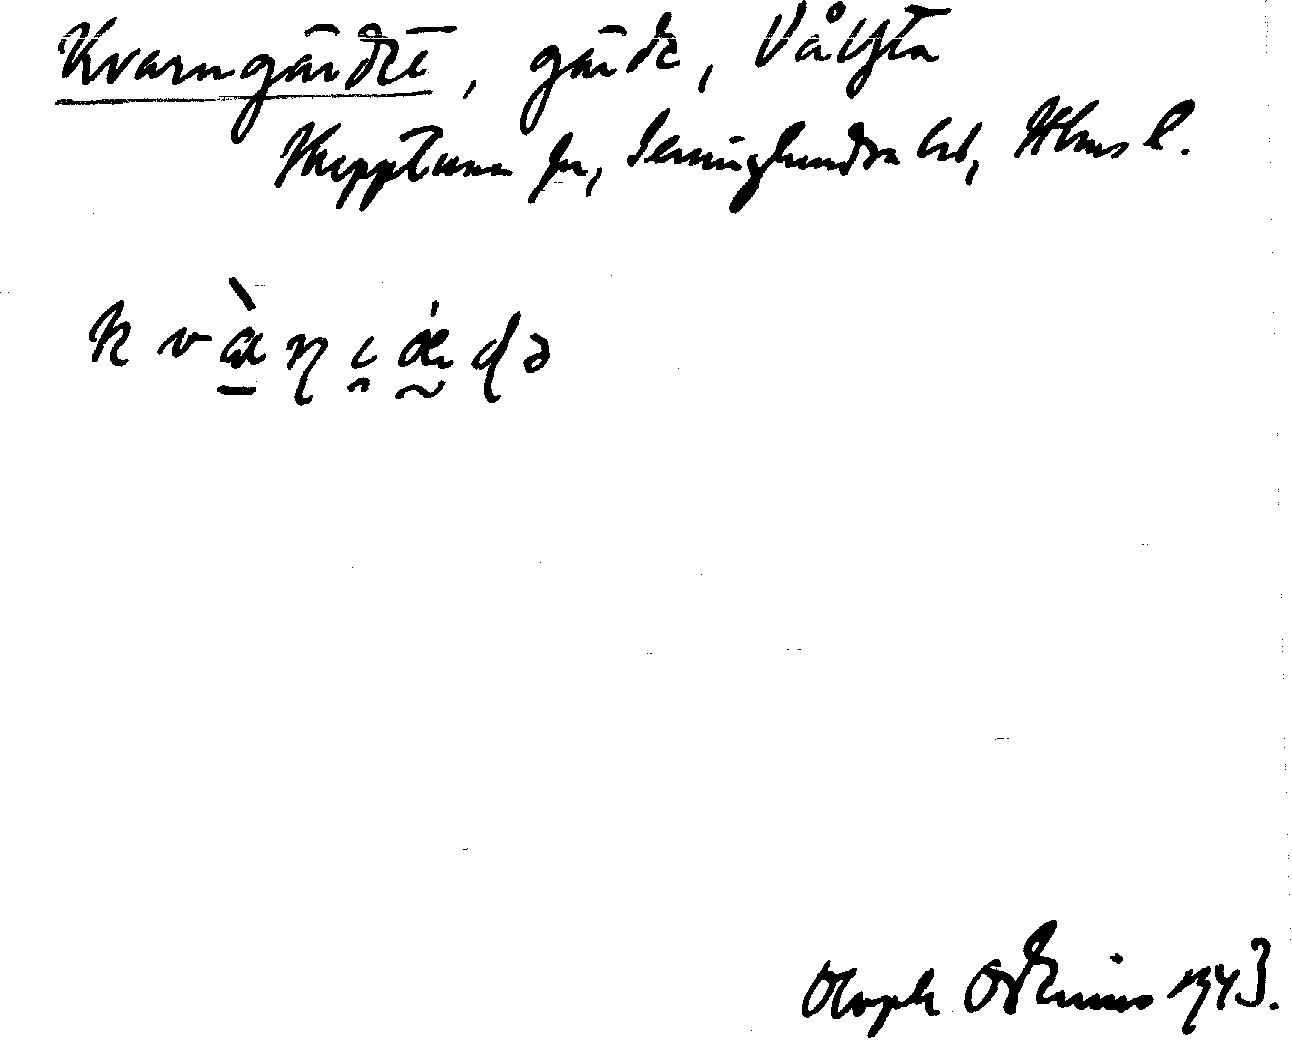 Kvarngärdet, gärde, Vålsta
Skepptuna sn, Seminghundra hd, Sthms l.
kvàꞃɩǽdə
Oloph Odenius 1943.